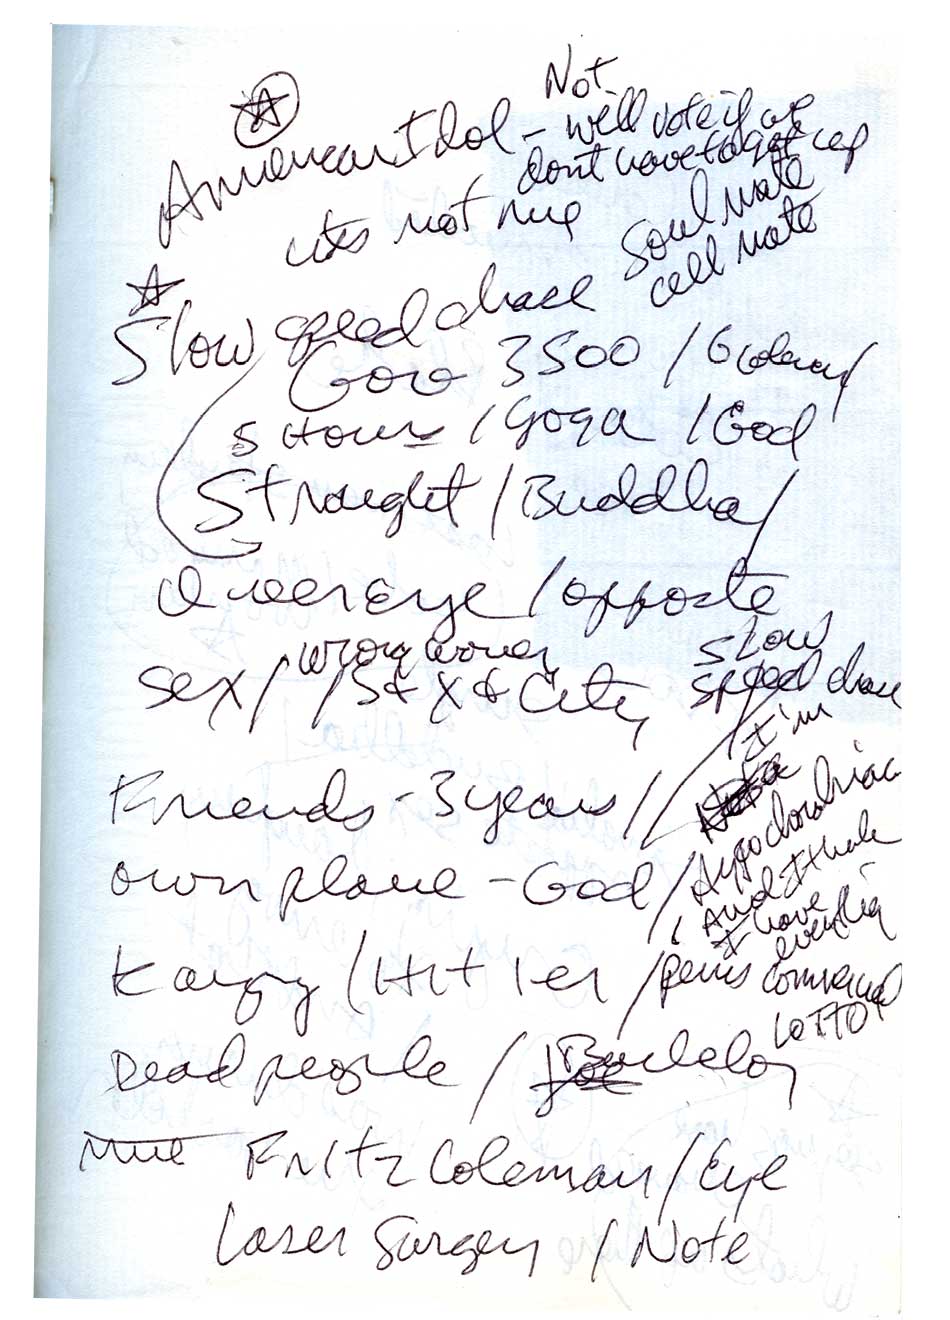 Not
American Idol - we'll vote if we
don't have to get up
its not me
soul mate
cell mate
Slow speed chase
Gov 3500 / Coleman /
5 Hours / Yoga / God
Straight / Buddha /
Queer Eye / opposte
sex / wrong women / Sex & City
slow
speed chase
Friends - 3 years /
I'm
a
Hypochondriac
own plane - God /
And I think
I have
everything
Kathy / Hitler /
penis commercial
LOTTO
Dead people / Bachelor
Mue Fritz Coleman / Eye
Laser Surgery / Note